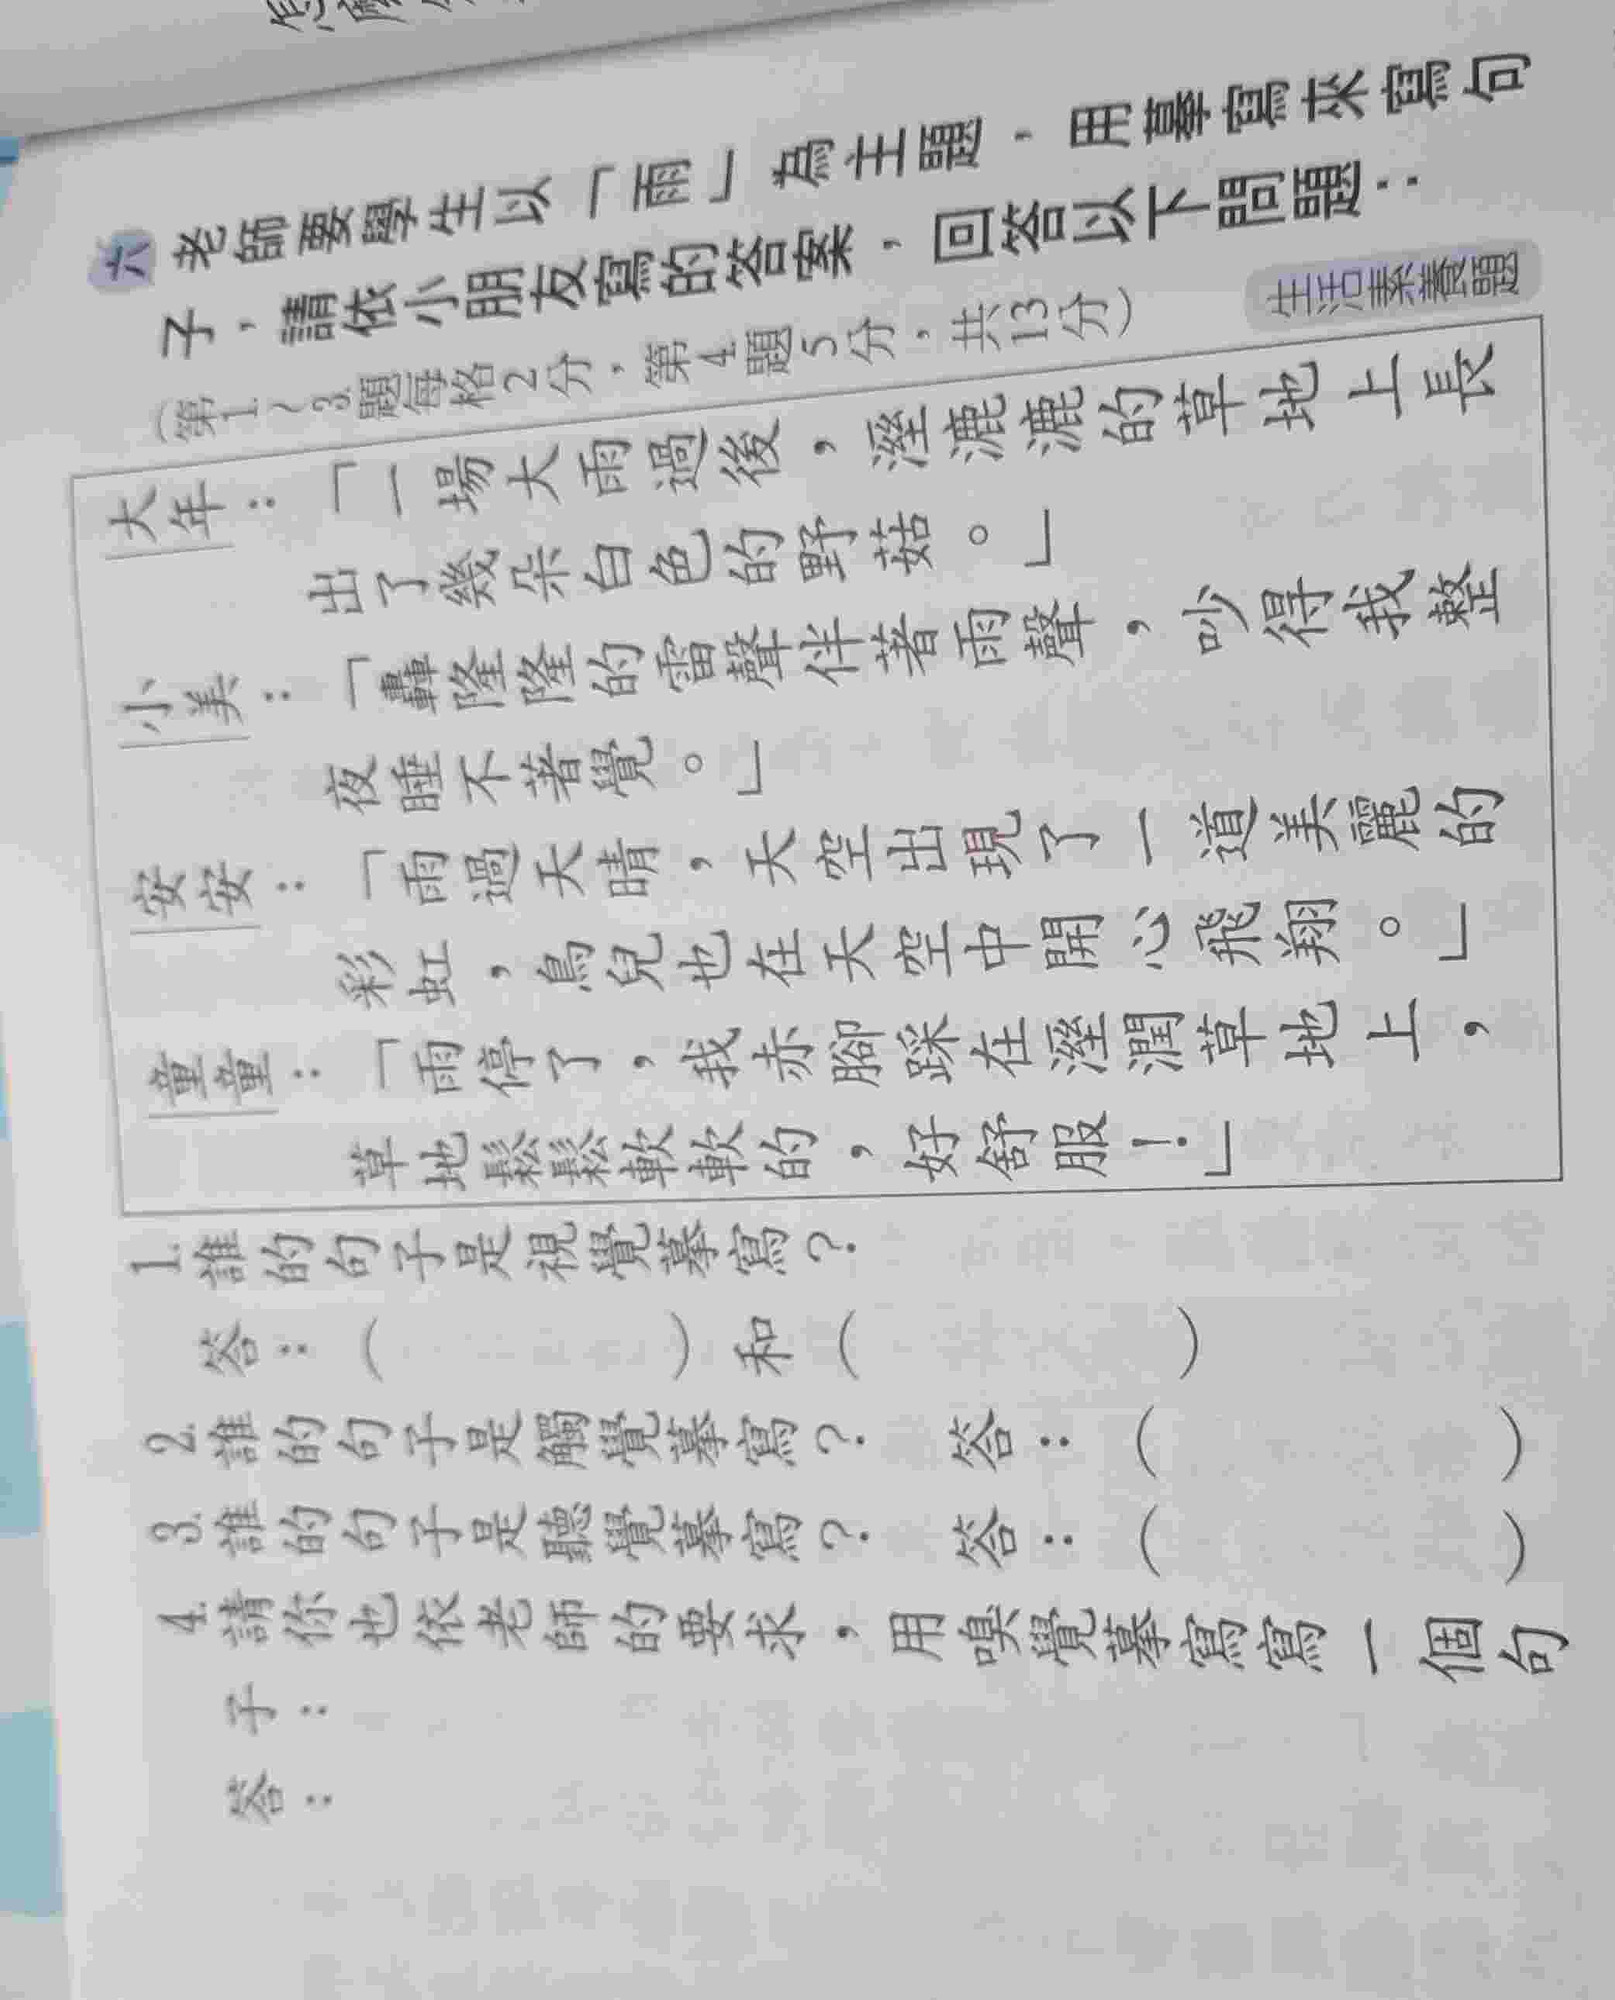 六 老師要學生以「雨」為主題，用摹寫來寫句
子，請依小朋友寫的答案，回答以下問題：
（第1.~3.題每格2分，第4.題5分，共13分）
生活素養題
大年：「一場大雨過後，溼漉漉的草地上長
出了幾朵白色的野菇。」
小美：「轟隆隆的雷聲伴著雨聲，吵得我整
夜睡不著覺。」
安安：「雨過天晴，天空出現了一道美麗的
彩虹，鳥兒也在天空中開心飛翔。」
童童：「雨停了，我赤腳踩在溼潤草地上，
草地鬆鬆軟軟的，好舒服！」
1.誰的句子是視覺摹寫？
答：（　　　　）和（　　　　）
2.誰的句子是觸覺摹寫？　答：（　　　　）
3.誰的句子是聽覺摹寫？　答：（　　　　）
4.請你也依老師的要求，用嗅覺摹寫寫一個句
子：
答：